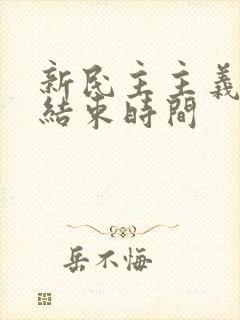 新民主主義
結束時間
岳不悔